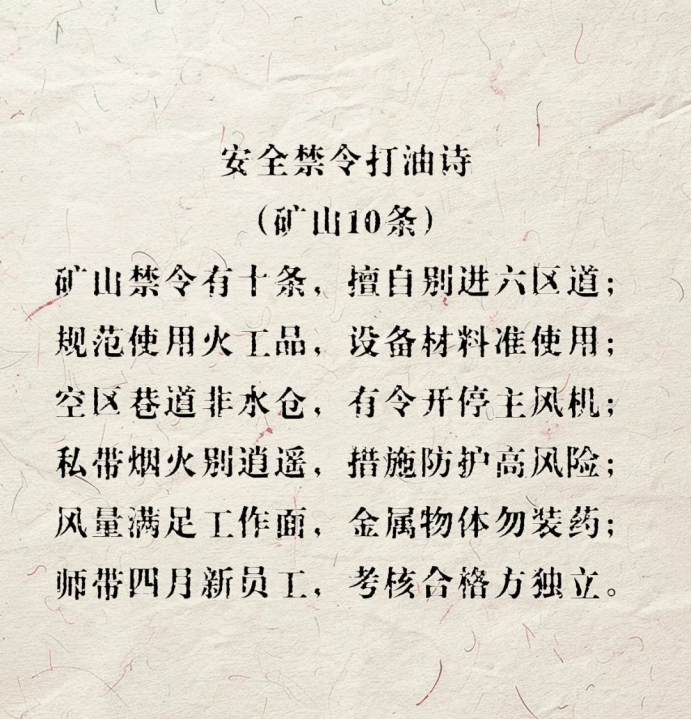 安全禁令打油诗
（矿山10条）
矿山禁令有十条，擅自别进六区道；
规范使用火工品，设备材料准使用；
空区巷道非水仓，有令开停主风机；
私带烟火别逍遥，措施防护高风险；
风量满足工作面，金属物体勿装药；
师带四月新员工，考核合格方独立。